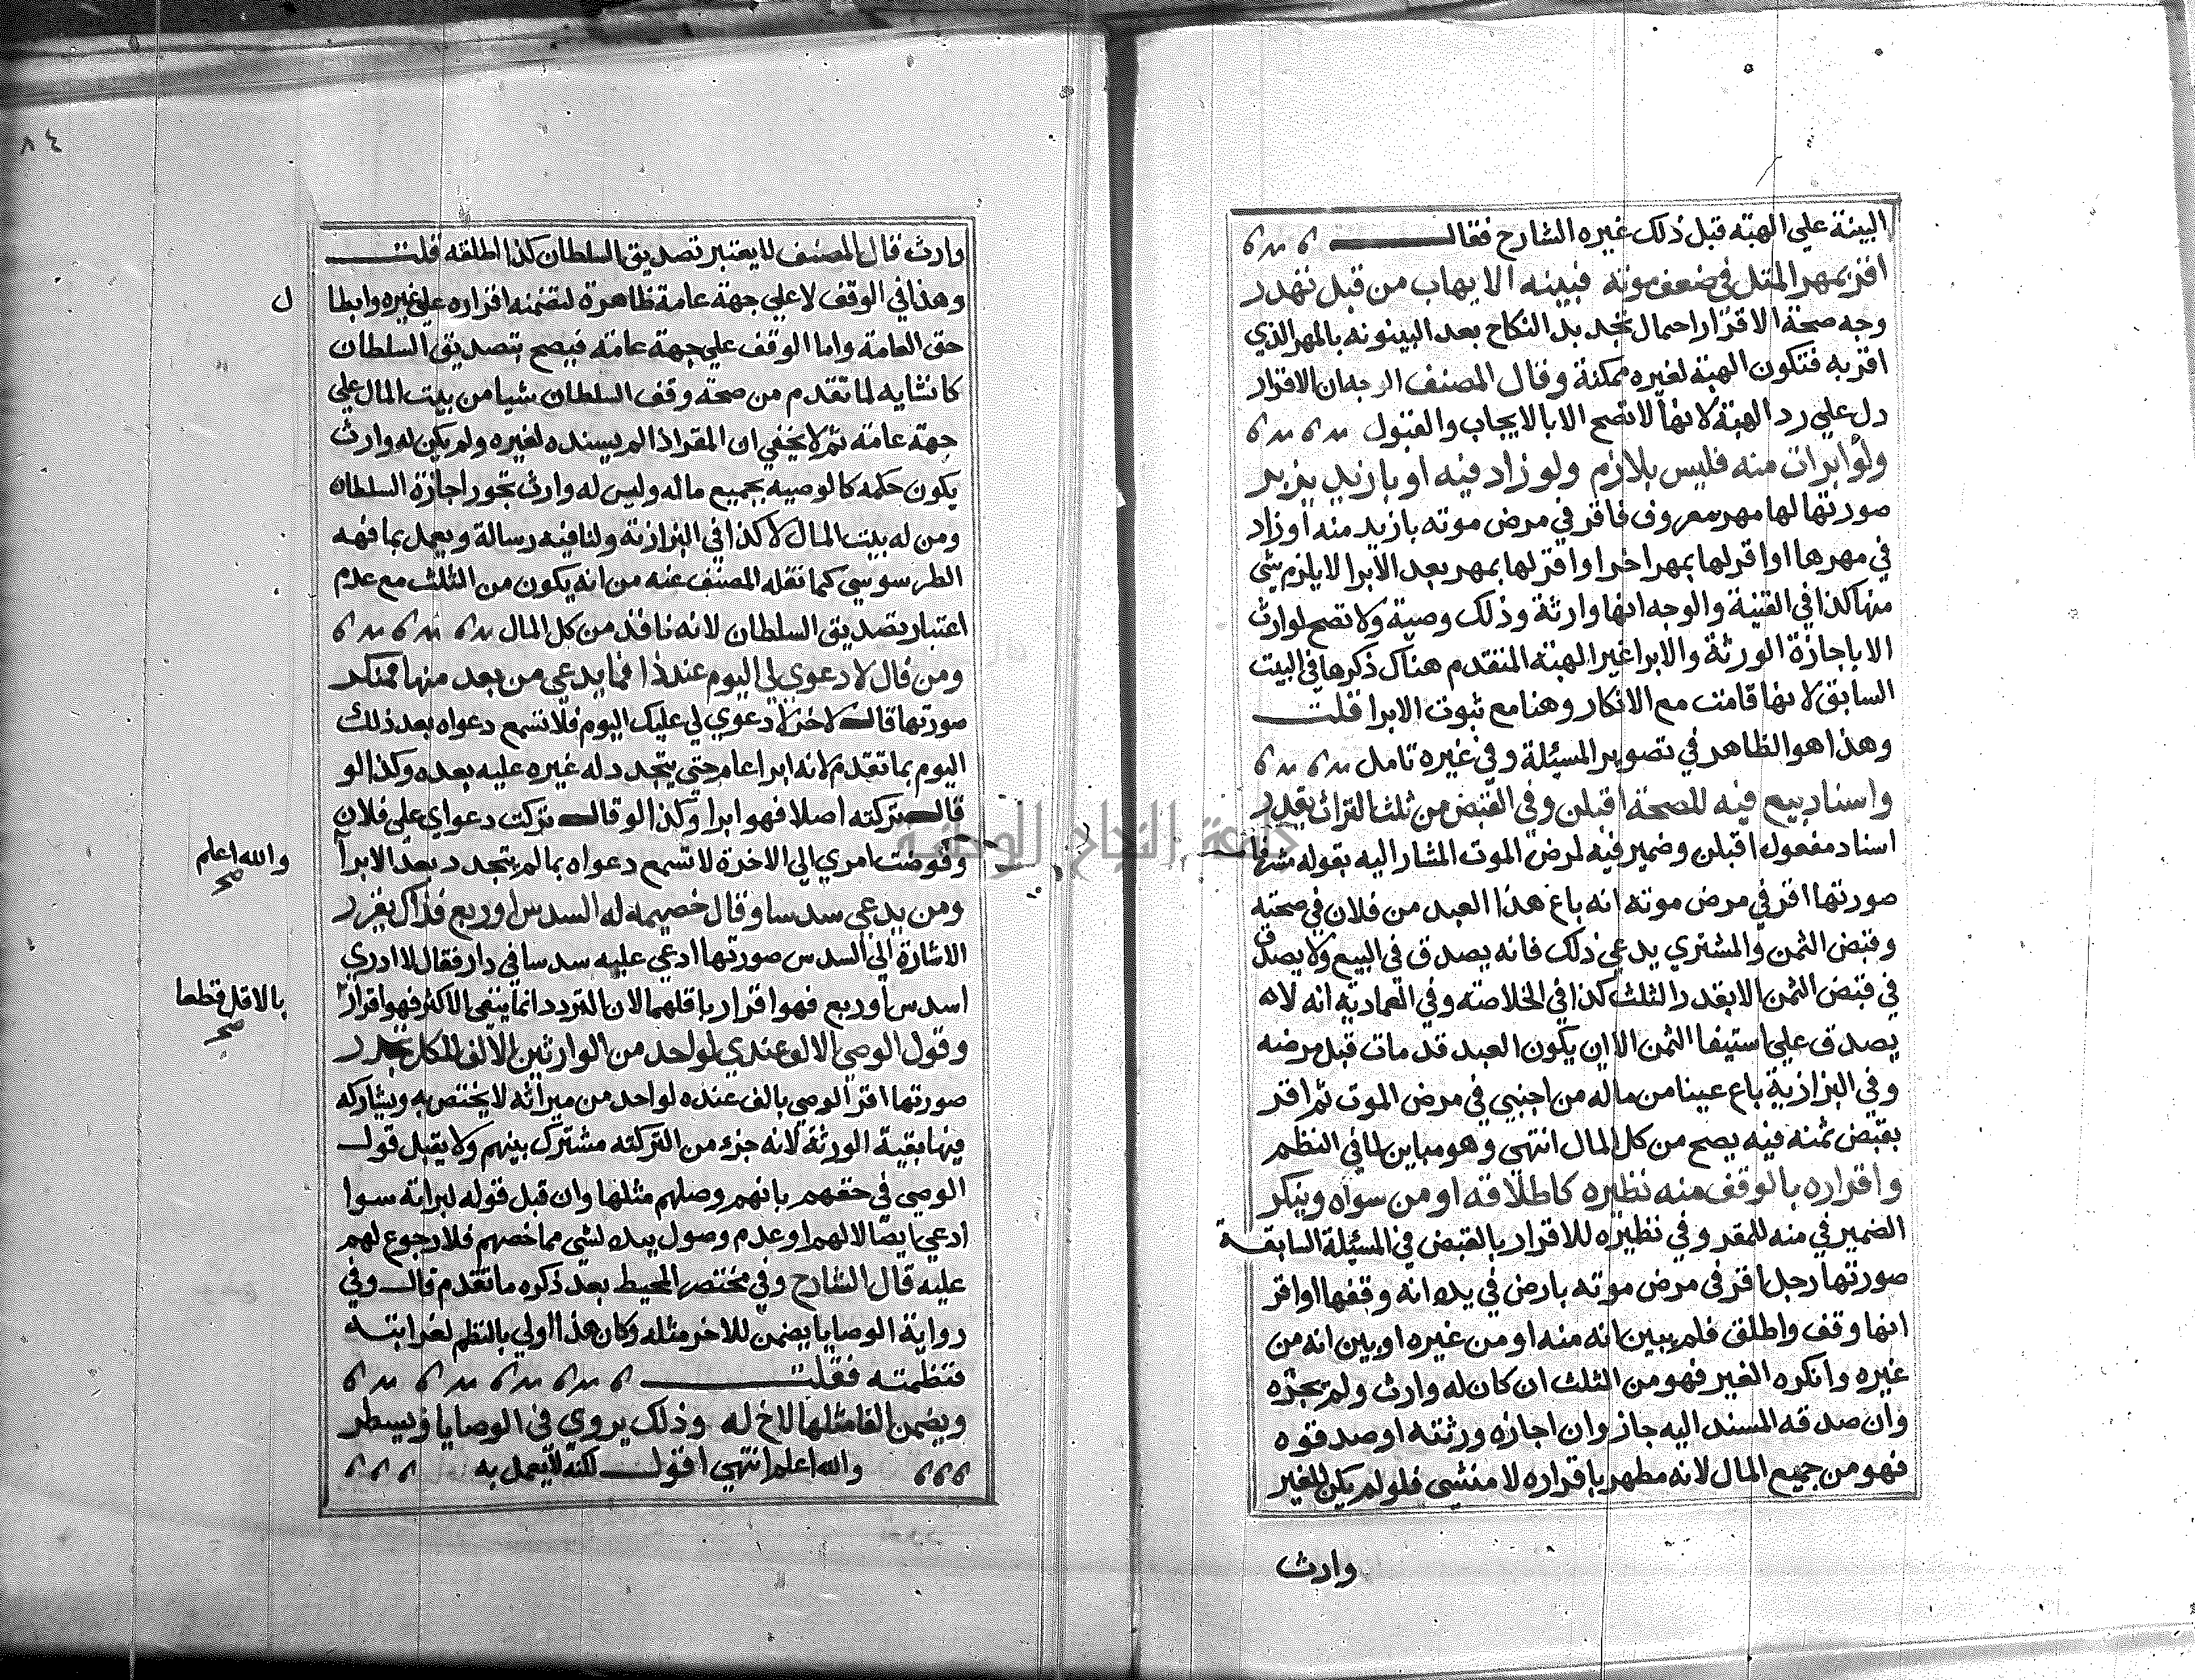 البينة علي الهبة قبل ذلك غيره الشارح فقال
اقر بمهر المثل في ضعف موته فبينة الايهاب من قبل تهدر
وجه صحة الاقرار احمال تجديد النكاح بعد البينونه بالمهر الذي
اقر به فتكون الهبة لغيره ممكنة وقال المصنف الوجه ان الاقرار
دل علي رد الهبة لانها لا تصح الا بالايجاب والقبول
ولو ابرات منه فليس بلازم ولو زاد فيه او بازيد يزبر
صورتها لها مهر معروف فاقر في مرض موته بازيد منه او زاد
في مهرها او اقر لها بمهر اخر او اقر لها بمهر بعد الابرا لا يلزم شي
منها كذا في القنية والوجه انها وارثة وذلك وصية ولا تصح لوارث
الا باجازة الورثة والابرا غير الهبة المتقدم هناك ذكرها في البيت
السابق لانها قامت مع الانكار وهنا مع ثبوت الابرا قلت
وهذا هو الظاهر في تصوير المسئلة وفي غيره تامل
واسناد بيع فيه للصحة اقبلن وفي القبض من ثلث التراث يقدر
اسناد مفعول اقبلن وضمير فيه لمرض الموت المشار اليه بقوله
صورتها اقر في مرض موته انه باع هذا العبد من فلان في صحته
وقبض الثمن والمشتري يدعي ذلك فانه يصدق في البيع ولا يصدق
في قبض الثمن الا بقدر الثلث كذا في الخلاصة وفي العمادية انه لانه
يصدق علي استيفا الثمن الا ان يكون العبد قد مات قبل مرضه
وفي البزازية باع عينا من ماله من اجنبي في مرض الموت ثم اقر
بقبض ثمنه فيه يصح من كل المال انتهي وهو مباين لما في النظم
واقراره بالوقف منه نظيره كاطلاقه او من سواه وينكر
الضمير في منه للمقر وفي نظيره للاقرار بالقبض في المسئلة السابقة
صورتها رجل اقر في مرض موته بارض في يده انه وقفها او اقر
انها وقف واطلق فلم يبين انه منه او من غيره او بين انه من
غيره وانكره الغير فهو من الثلث ان كان له وارث ولم يجزه
وان صدقه المسند اليه جاز وان اجازه ورثته او صدقوه
فهو من جميع المال لانه مظهر باقراره لا منشي فلو لم يكن للغير
وارث
٨٤
وارث قال المصنف لا يعتبر تصديق السلطان كذا اطلقه قلت
وهذا في الوقف لا علي جهة عامة ظاهرة لتضمنه اقراره علي غيره وابطا
ل
حق العامة واما الوقف علي جهة عامة فيصح بتصديق السلطان
كانشايه لما تقدم من صحة وقف السلطان شيا من بيت المال علي
جهة عامة ثم لا يخفي ان المقر اذا لم يسنده لغيره ولم يكن له وارث
يكون حكمه كالوصيه بجميع ماله وليس له وارث تجوز اجازة السلطان
ومن له بيت المال لا كذا في البزازية ولنا فيه رسالة ويعمل بما فهمه
الطرسوسي كما نقله المصنف عنه من انه يكون من الثلث مع عدم
اعتبار تصديق السلطان لانه نافذ من كل المال
ومن قال لا دعوي لي اليوم عند ذا فما يدعي من بعد منها فمنكر
صورتها قال لاخر لا دعوي لي عليك اليوم فلا تسمع دعواه بعد ذلك
اليوم بما تقدم لانه ابرا عام حتي يتجدد له غيره عليه بعده وكذا لو
قال تركته اصلا فهو ابرا وكذا لو قال تركت دعواي علي فلان
وفوضت امري الي الاخرة لا تسمع دعواه بما لم يتجدد بعد الابرآ
والله اعلم
صح
ومن يدعي سدسا وقال خصيمه له السدس او ربع فذاك يقرر
الاشارة الي السدس صورتها ادعي عليه سدسا في دار فقال لا ادري
اسدس او ربع فهو اقرار باقلهما لان التردد انما ينفي الاكثر فهو اقرار
بالاقل قطعا
صح
وقول الوصي الالف عندي لواحد من الوارثين الالف للكل
صورتها اقر الوصي بالف عنده لواحد من ميراثه لا يختص به ويشاركه
فيها بقية الورثة لانه جزء من التركته مشترك بينهم ولا يقبل قول
الوصي في حقهم بانهم وصلهم مثلها وان قبل قوله لبراته سوا
ادعي ايصالا لهم او عدم وصول يده لشي مما خصهم فلا رجوع لهم
عليه قال الشارح وفي مختصر المحيط بعد ذكره ما تقدم قال وفي
رواية الوصايا يضمن للاخر مثله وكان هذا اولي بالنظم لغرابته
فنظمته فقلت
ويضمن الفا مثلها لاخ له وذلك يروي في الوصايا ويسطر
والله اعلم انتهي اقول لكنه لا يعمل به